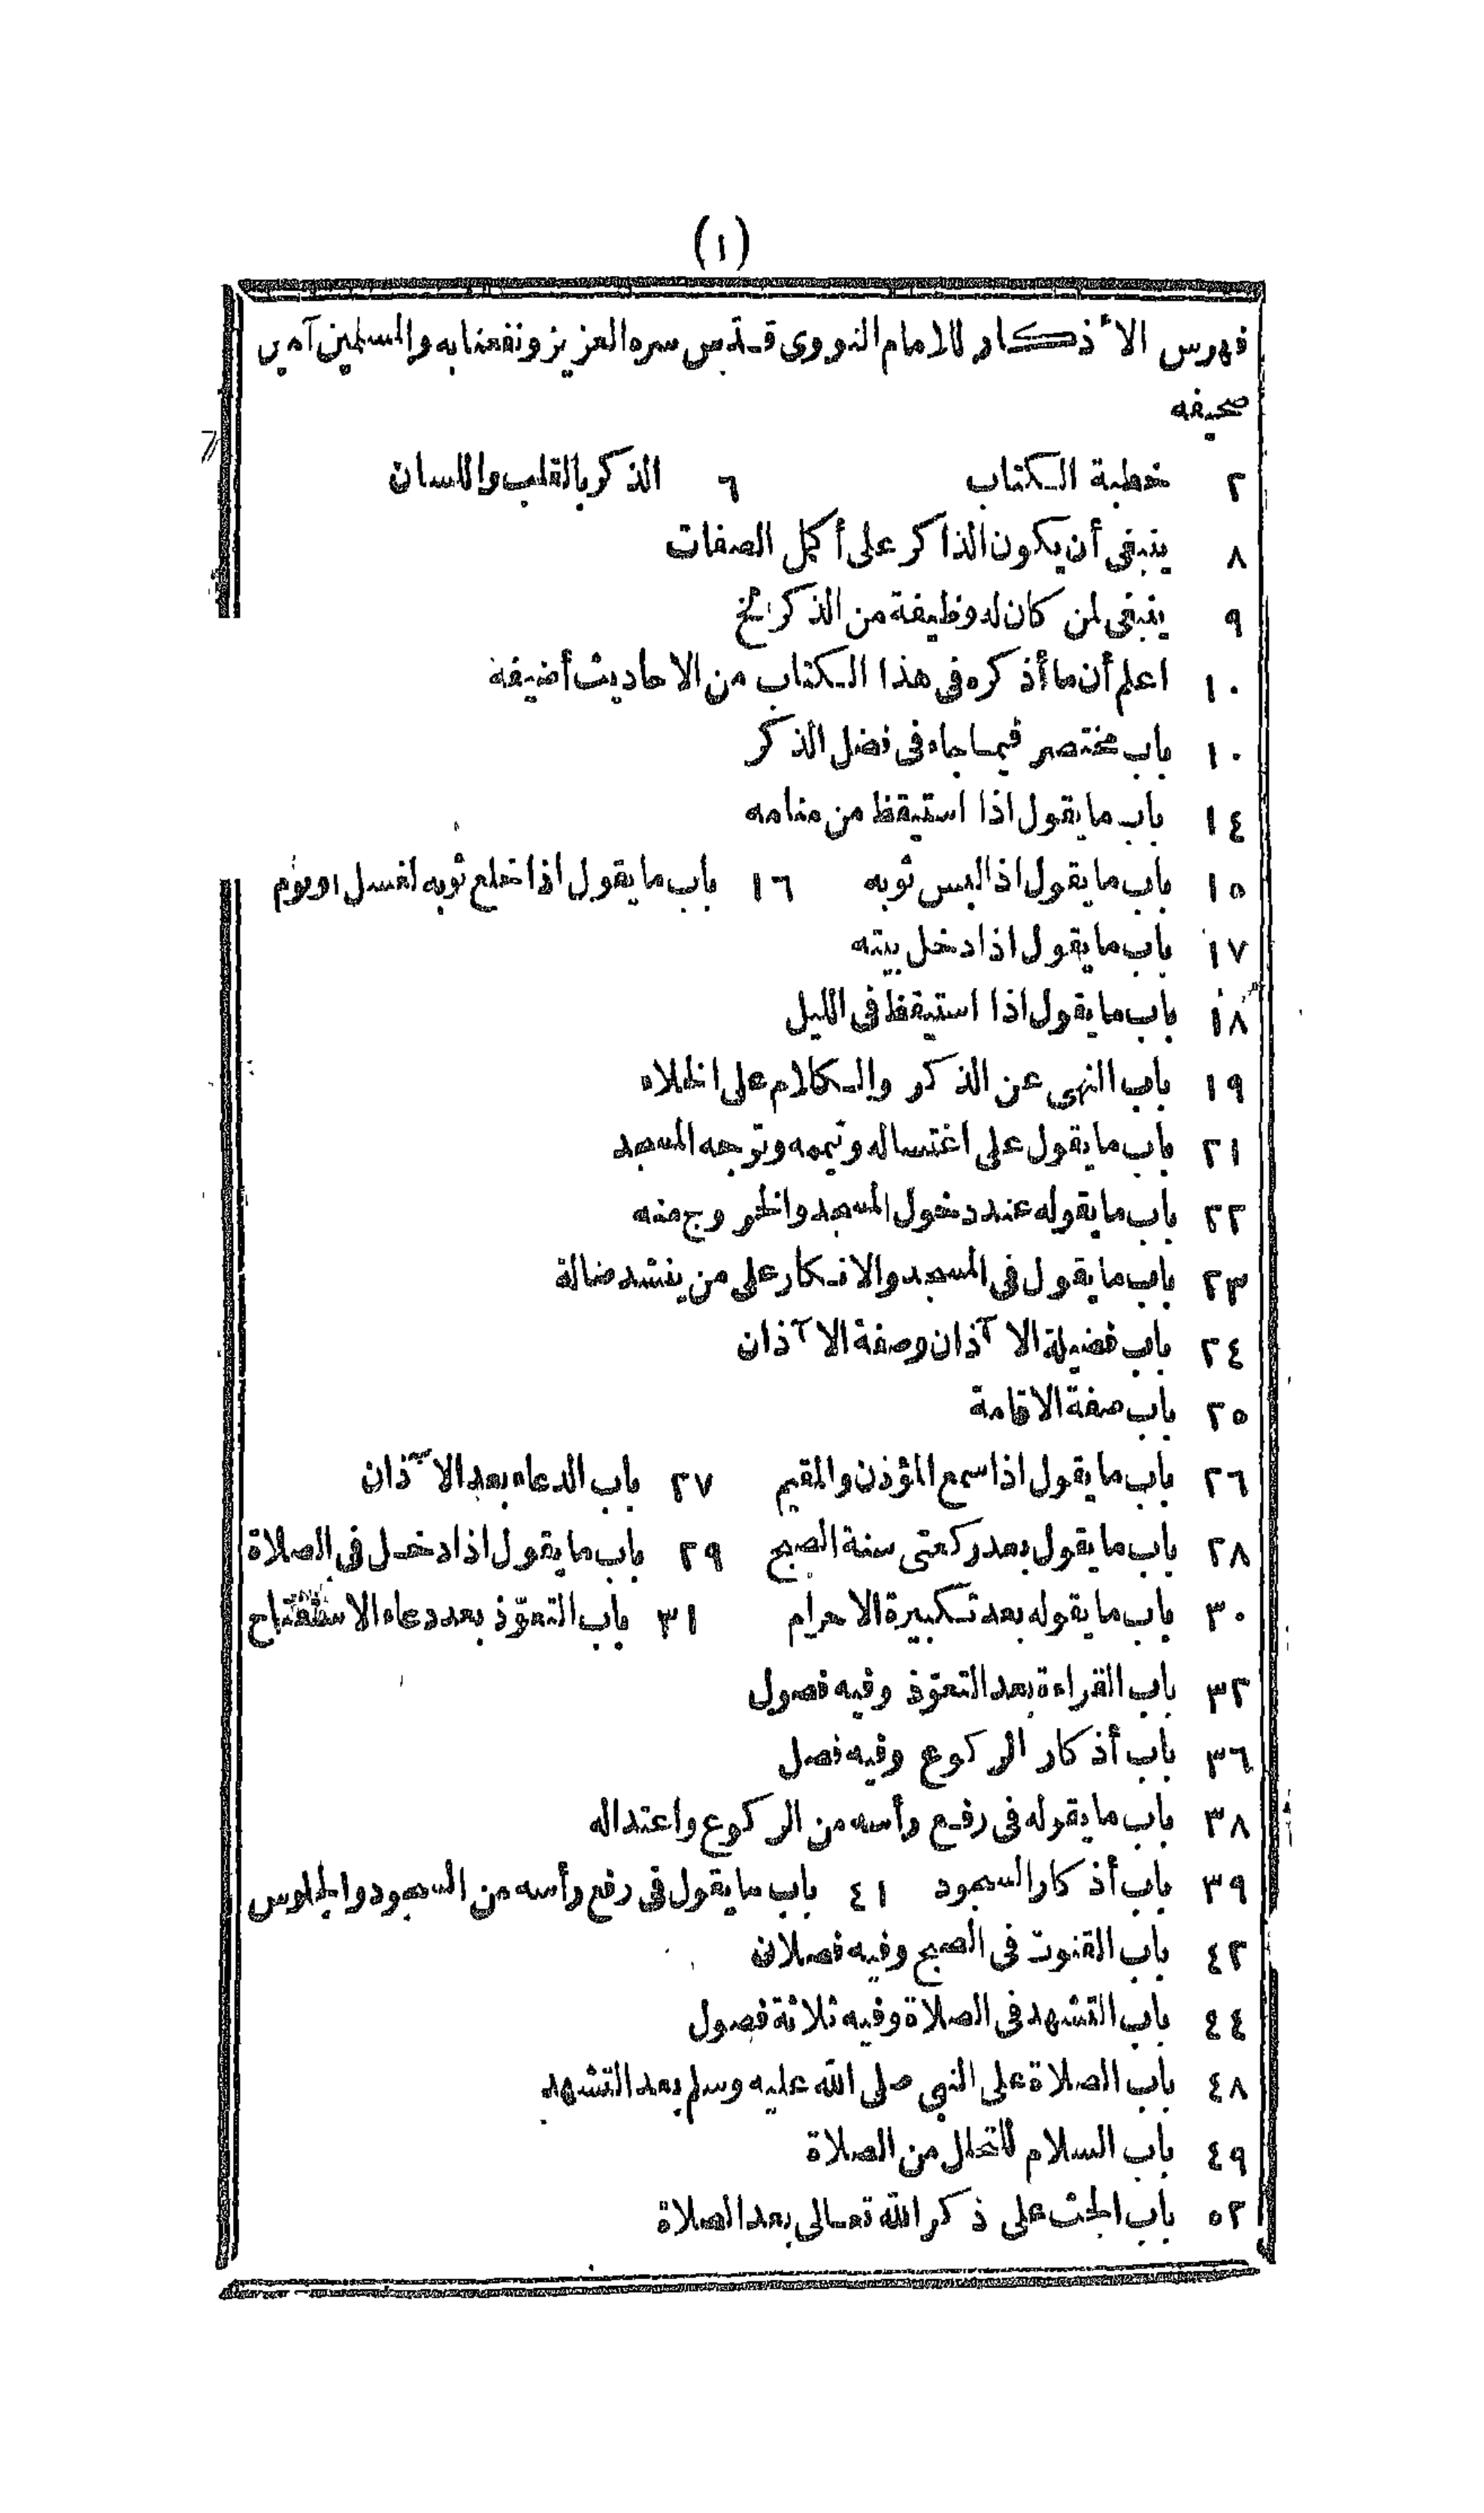 (١)
فهرس الأذكار للامام النووى قدس سره العزيز ونفعنا به والمسلمين آمين
صحيفه
٢ خطبة الكتاب ٦ الذكر بالقلب واللسان
٨ ينبغى أن يكون الذاكر على أكمل الصفات
٩ ينبغى لمن كان له وظيفة من الذكر الخ
١٠ اعلم أن ما أذكره فى هذا الكتاب من الاحاديث أضيفه
١٠ باب مختصر فيما جاء فى فضل الذكر
١٤ باب ما يقول اذا استيقظ من منامه
١٥ باب ما يقول اذا لبس ثوبه ١٦ باب ما يقول اذا خلع ثوبه لغسل او نوم
١٧ باب ما يقول اذا دخل بيته
١٨ باب ما يقول اذا استيقظ فى الليل
١٩ باب النهى عن الذكر والكلام على الخلاء
٢١ باب ما يقول على اغتساله وتيممه وتوجه المسجد
٢٢ باب ما يقوله عند دخول المسجد والخروج منه
٢٣ باب ما يقول فى المسجد والانكار على من ينشد ضالة
٢٤ باب فضيلة الاآذان وصفة الاآذان
٢٥ باب صفة الاقامة
٢٦ باب ما يقول اذا سمع المؤذن والمقيم ٢٧ باب الدعاء بعد الاآذان
٢٨ باب ما يقول بعد ركعتى سنة الصبح ٢٩ باب ما يقول اذا دخل فى الصلاة
٣٠ باب ما يقوله بعد تكبيرة الاحرام ٣١ باب التعوّذ بعد دعاء الاستفتاح
٣٢ باب القراءة بعد التعوّذ وفيه فصول
٣٦ باب أذكار الركوع وفيه فصل
٣٨ باب ما يقوله فى رفع رأسه من الركوع واعتداله
٣٩ باب أذكار السجود ٤١ باب ما يقول فى رفع رأسه من السجود والجلوس
٤٢ باب القنوت فى الصبح وفيه فصلان
٤٤ باب التشهد فى الصلاة وفيه ثلاثة فصول
٤٨ باب الصلاة على النبى صلى الله عليه وسلم بعد التشهد
٤٩ باب السلام للتحلل من الصلاة
٥٢ باب الحث على ذكر الله تعالى بعد الصلاة